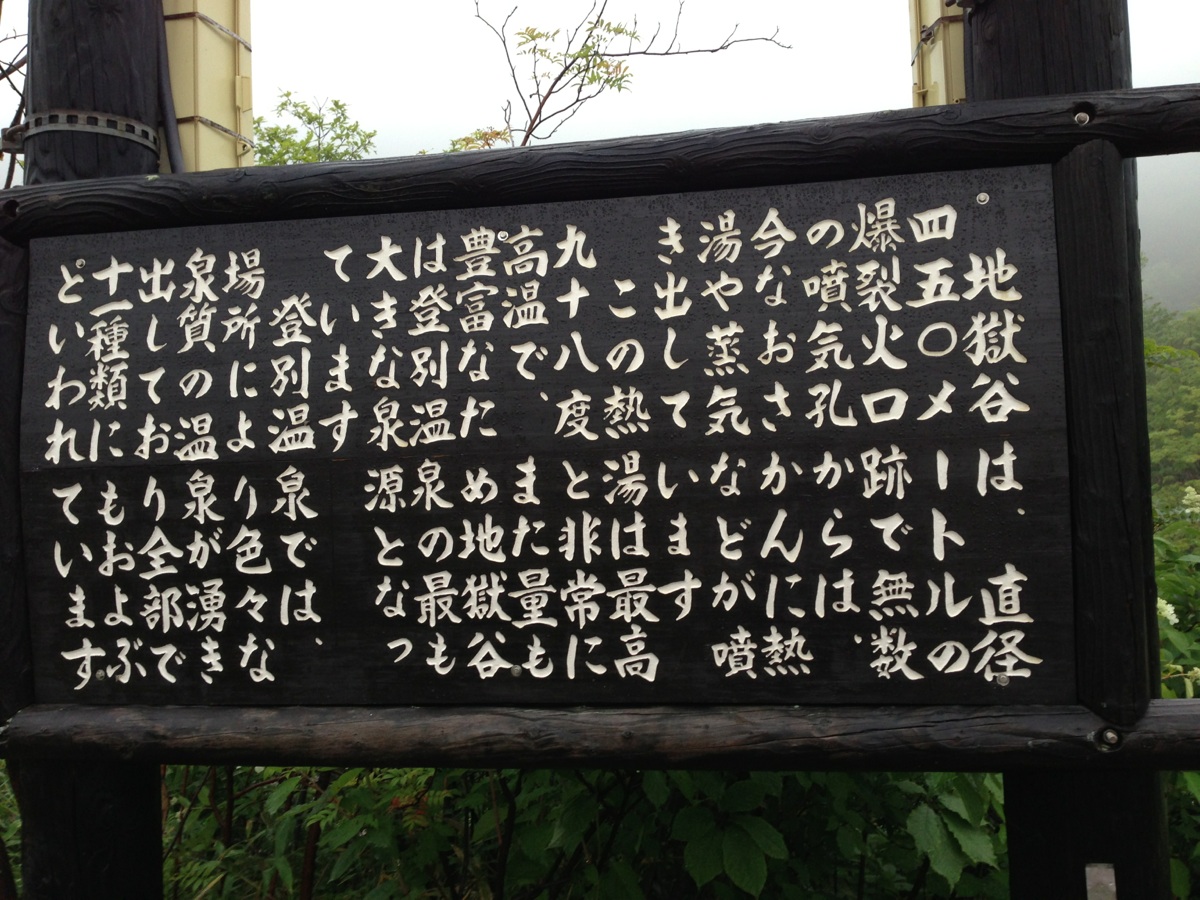 地獄谷は、直径
四五〇メートルの
爆裂火口跡で無数
の噴気孔からは、
今なおさかんに熱
湯や蒸気などが噴
き出しています
この熱湯は最高
九十八度と非常に
高温で、また量も
豊富なため地獄谷
は登別温泉の最も
大きな泉源となっ
ています
登別温泉では、
場所により色々な
泉質の温泉が湧き
出しており全部で
十一種類にもおよぶ
といわれています